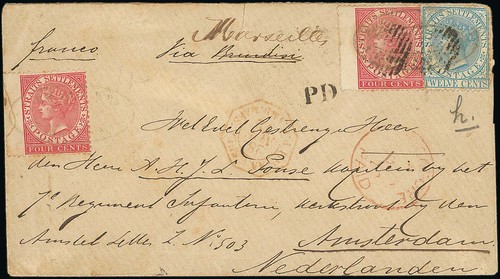 Marseilles
franco Via Brindisi
STRAITS SETTLEMENTS
POSTAGE
FOUR CENTS
STRAITS SETTLEMENTS
POSTAGE
TWELVE CENTS
PD
h.
STRAITS SETTLEMENTS
POSTAGE
FOUR CENTS
Wel Edel Gestrenge Heer
den Heer A. H. J. L. kapitein by het
7e Regiment Infanterie, by den
Amstel Letter L. No 503
Amsterdam
Nederlanden